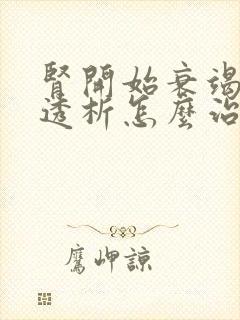 腎開始衰竭
透析怎麼治
鷹岬諒